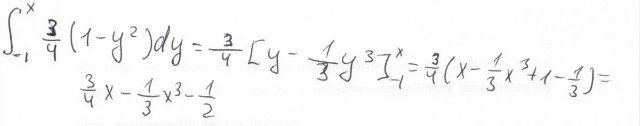 ∫_{-1}^{x} 3/4 (1-y²)dy = 3/4 [y - 1/3 y³]_{-1}^{x} = 3/4 (x - 1/3 x³ + 1 - 1/3) =
3/4 x - 1/3 x³ - 1/2